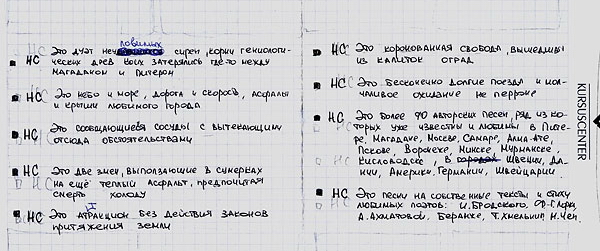 ловимых
НС Это дуэт неу сирен, корни гениологи-
ческих древ коих затерялись где-то между
Магаданом и Питером
НС Это небо и море, дорога и скорость, асфальты
и крыши любимого города
НС Это сообщающиеся сосуды с вытекающими
отсюда обстоятельствами
НС Это две змеи, выползающие в сумерках
на ещё теплый асфальт, предпочитая
смерть холоду
НС Это аттракцион без действия законов
притяжения земли
НС Это коронованная свобода, вышедшая
из калиток оград
НС Это бесконечно долгие поезда и мол-
чаливое ожидание на перроне
НС Это более 90 авторских песен, ряд из ко-
торых уже известны и любимы в Пите-
ре, Магадане, Москве, Самаре, Алма-Ате,
Пскове, Воронеже, Минске, Мурманске,
Кисловодске, в городах Швеции, Да-
нии, Америки, Германии, Швейцарии
НС Это песни на собственные тексты и стихи
любимых поэтов: И. Бродского, Ф-Г. Лорки,
А. Ахматовой, Беранже, Т. Хмельник, Н.
KURSUSCENTER